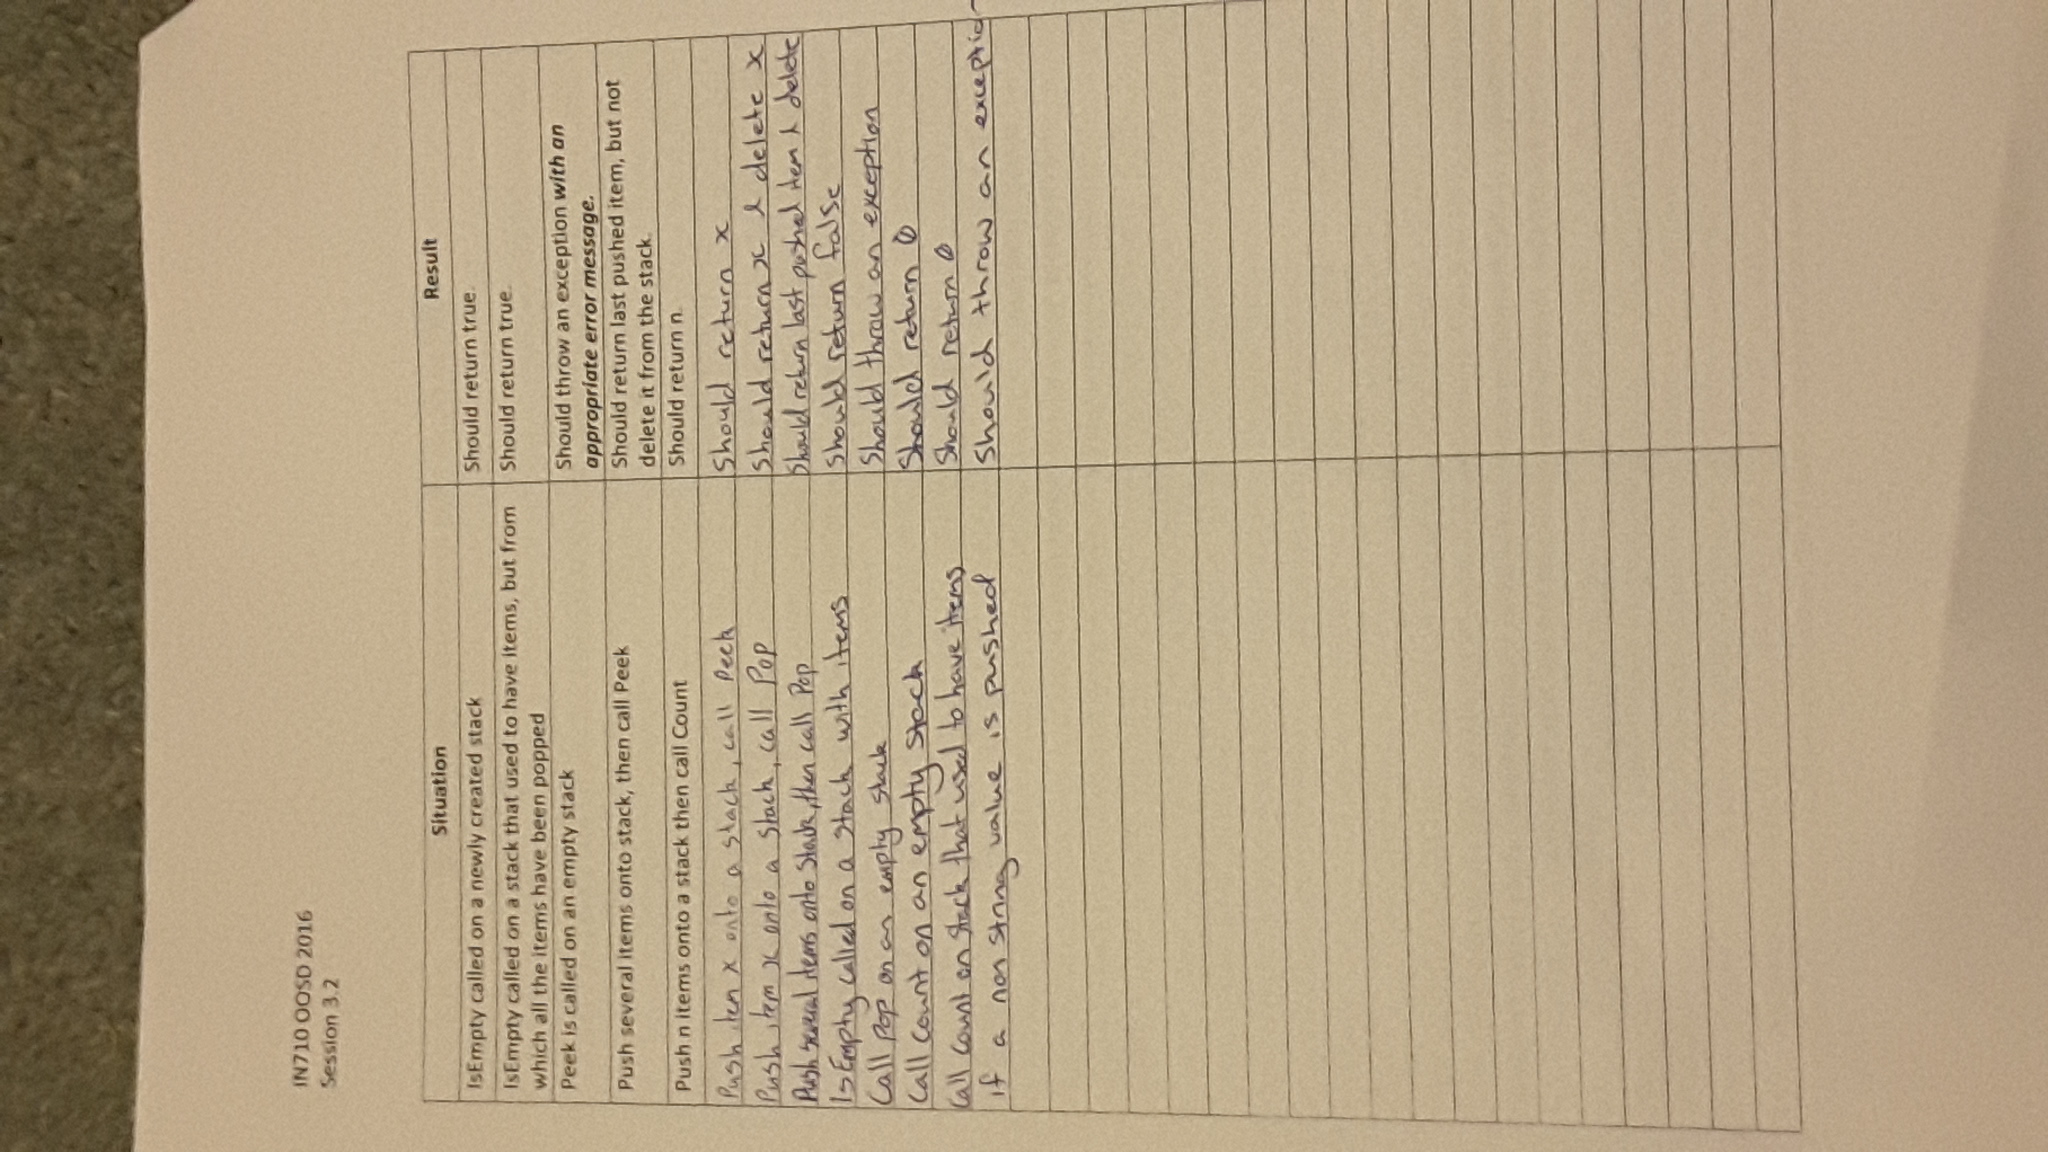 IN710 OOSD 2016
Session 3.2
Situation Result
IsEmpty called on a newly created stack Should return true.
IsEmpty called on a stack that used to have items, but from Should return true.
which all the items have been popped
Peek is called on an empty stack Should throw an exception with an
appropriate error message.
Push several items onto stack, then call Peek Should return last pushed item, but not
delete it from the stack.
Push n items onto a stack then call Count Should return n.
Push item x onto a stack, call Peek Should return x
Push item x onto a stack, call Pop Should return x & delete x
Push several items onto stack, then call Pop Should return last pushed item & delete
IsEmpty called on a stack with items Should return false
Call Pop on an empty stack Should throw an exception
Call count on an empty stack Should return 0
Call count on stack that used to have items Should return 0
if a non string value is pushed Should throw an exception